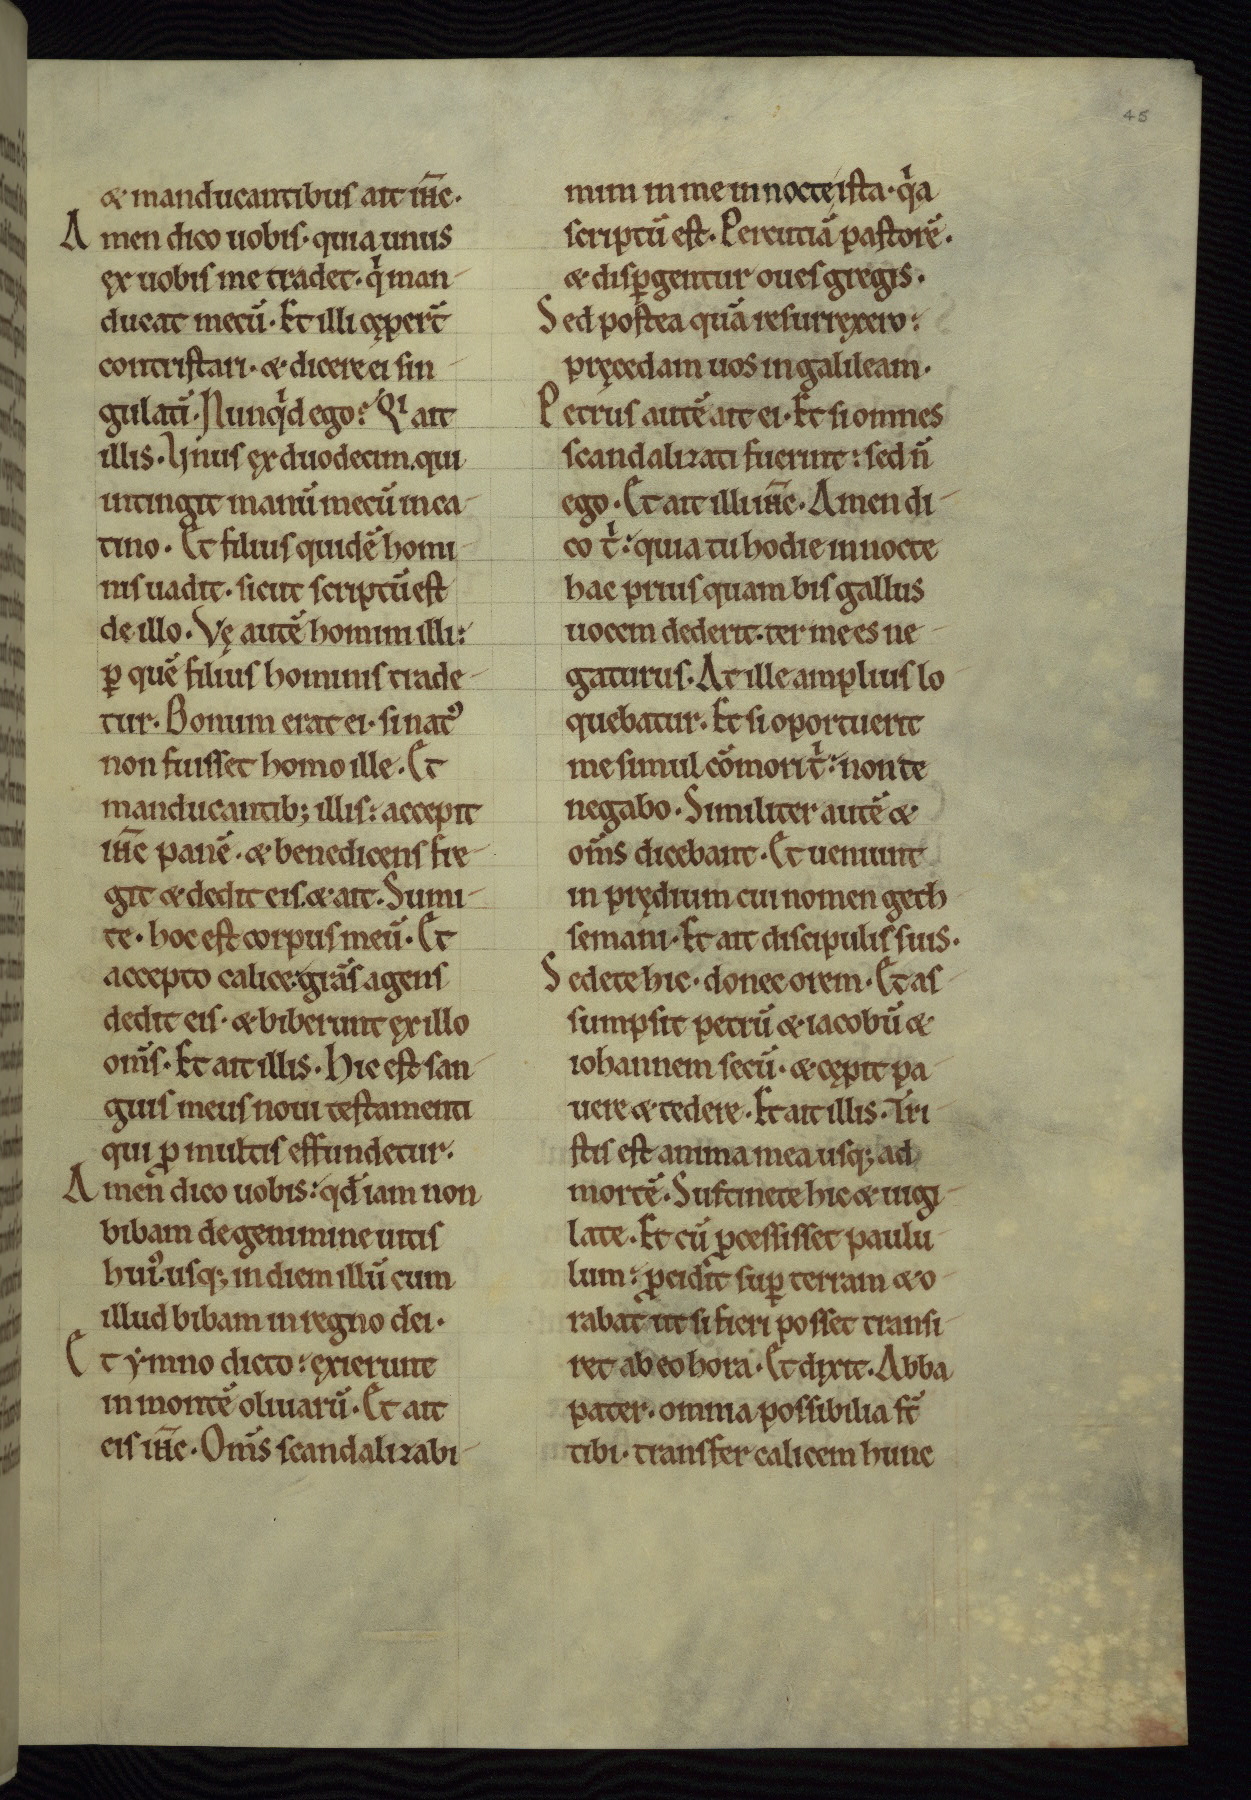 45
& manducantibus ait ih̄c·
Amen dico uobis· quia unus
ex uobis me tradet· qͥ man-
ducat mecū· Et illi cęper̄t
contristari· & dicere ei sin-
gulatī· Nunqͥd ego: Qͥ ait
illis· Vnus ex duodecim. qui
intingit manū mecū in ca-
tino· Et filius quidē homi-
nis uadit· sicut scriptū est
de illo· Vę autē homini illi:
ꝑ quē filius hominis trade-
tur· Bonum erat ei· si natꝰ
non fuisset homo ille· Et
manducantib; illis: accepit
ih̄c panē· & benedicens fre-
git & dedit eis. & ait· Sumi-
te· hoc est corpus meū· Et
accepto calice: grās agens
dedit eis· & biberunt ex illo
om̄s· Et ait illis· Hic est san-
guis meus noui testamenti
qui ꝓ multis effundetur·
Amen dico uobis: qđ iam non
bibam de genimine uitis
huiꝰ. usq; in diem illū cum
illud bibam in regno dei·
Et ẏmno dicto: exierunt
in montē oliuarū· Et ait
eis ih̄c· Om̄s scandalizabi-
mini in me in nocte ista· qͥa
scriptū est· Percutiā pastorē·
& disꝑgentur oues gregis·
Sed postea quā resurrexero:
pręcedam uos in galileam·
Petrus autē ait ei· Et si omnes
scandalizati fuerint: sed n̄
ego· Et ait illi ih̄c· Amen di-
co tͥ: quia tu hodie in nocte
hac prius quam bis gallus
uocem dederit· ter me es ne-
gaturus· At ille amplius lo
quebatur· Et si oportuerit
me simul cōmori tͥ: non te
negabo· Similiter autē &
om̄s dicebant· Et ueniunt
in prędium cui nomen geth-
semani· Et ait discipulis suis·
Sedete hic· donec orem· Et as-
sumpsit petrū & iacobū &
iohannem secū· & cępit pa-
uere & tedere· Et ait illis· Tri-
stis est anima mea usq; ad
mortē· Sustinete hic & uigi-
late· Et cū ꝓcessisset paulu-
lum: ꝓcidit suꝑ terram & o-
rabat ut si fieri posset transi-
ret ab eo hora· Et dixit· Abba
pater· omnia possibilia st̄
tibi· transfer calicem hunc